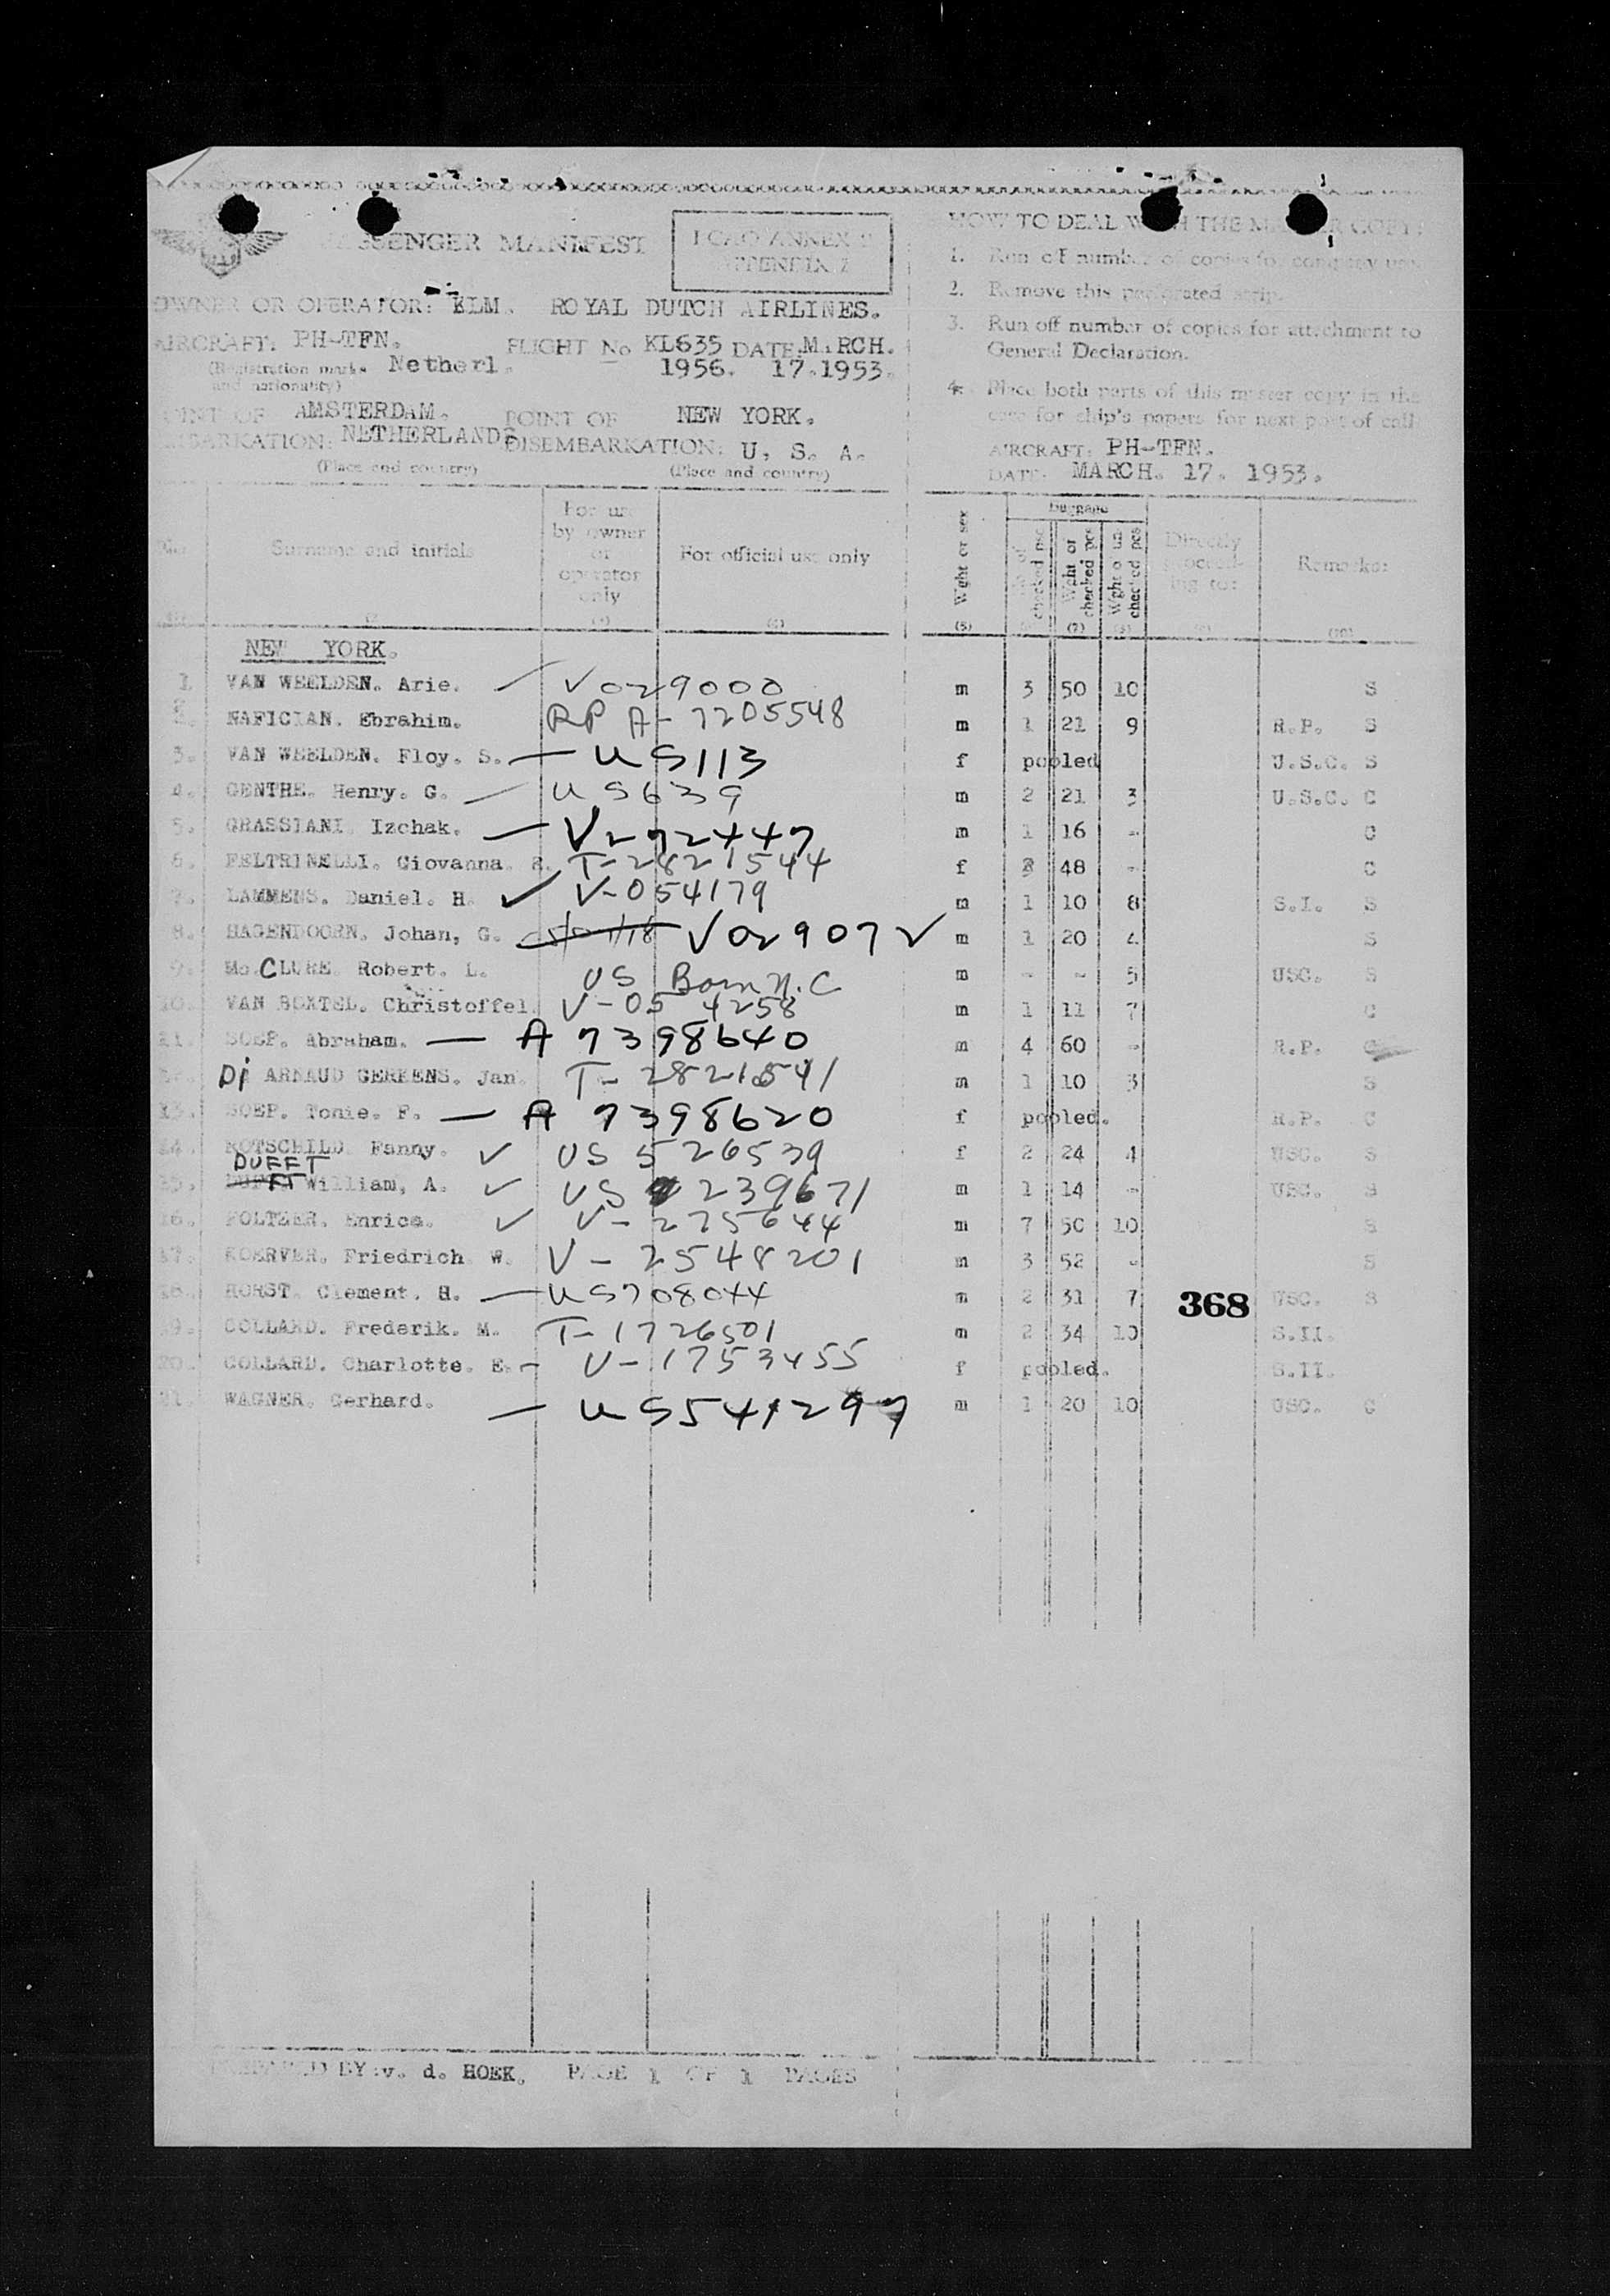 PASSENGER MANIFEST
ICAO ANNEX 9
APPENDIX 2
HOW TO DEAL WITH THE MASTER COPY:
1. Run off number of copies for company use.
2. Remove this perforated strip.
3. Run off number of copies for attachment to
General Declaration.
4. Place both parts of this master copy in the
case for ship's papers for next port of call
OWNER OR OPERATOR: KLM. ROYAL DUTCH AIRLINES.
AIRCRAFT: PH-TFN. FLIGHT No KL635 DATE: MARCH.
(Registration marks and nationality) Netherl. 1956. 17.1953.
POINT OF EMBARKATION: AMSTERDAM. NETHERLANDS
POINT OF DISEMBARKATION: NEW YORK. U. S. A.
(Place and country) (Place and country)
AIRCRAFT: PH-TFN.
DATE: MARCH. 17. 1953.
No Surname and initials For use by owner or operator only For official use only Wght or sex Baggage checked pcs Wght of checked pcs Wght of un checked pcs Directly proceeding to: Remarks:
(5) (7)
NEW YORK.
1. VAN WEELDEN. Arie. V 029000 m 3 50 10 S
2. NAFICIAN. Ebrahim. RP A-7205548 m 1 21 9 R.P. S
3. VAN WEELDEN. Floy. S. — US113 f pooled U.S.C. S
4. GENTHE. Henry. G. — US639 m 2 21 3 U.S.C. C
5. GRASSIANI. Izchak. — V272447 m 1 16 - C
6. FELTRINELLI. Giovanna. T-2821544 f 3 48 - C
7. LAMMENS. Daniel. H. ✓ V-054179 m 1 10 8 S.I. S
8. HAGENDOORN. Johan, G. V029072 ✓ m 1 20 4 S
9. Mc.CLURE. Robert. L. US Born N.C m - - 5 USC. S
10. VAN BOXTEL. Christoffel. V-05 4258 m 1 11 7 C
11. SOEP. Abraham. — A 7398640 m 4 60 - R.P. C
12. Di ARNAUD GERKENS. Jan. T-2821541 m 1 10 3 S
13. SOEP. Tonie. F. — A 7398620 f pooled. R.P. C
14. ROTSCHILD. Fanny. ✓ US 526539 f 2 24 4 USC. S
DUFFT
15. William, A. ✓ US 239671 m 1 14 - USC. S
16. FOLTZER. Enrica. ✓ V-275644 m 7 50 10 S
17. KOERVER. Friedrich W. V-2548201 m 3 52 - S
18. HORST. Clement. H. — US708044 m 2 31 7 USC. S
368
19. COLLARD. Frederik. M. T-1726501 m 2 34 10 S.II.
20. COLLARD. Charlotte. E. - V-1753455 f pooled. S.II.
21. WAGNER. Gerhard. — US541297 m 1 20 10 USC. C
PREPARED BY: v. d. HOEK. PAGE 1 OF 1 PAGES